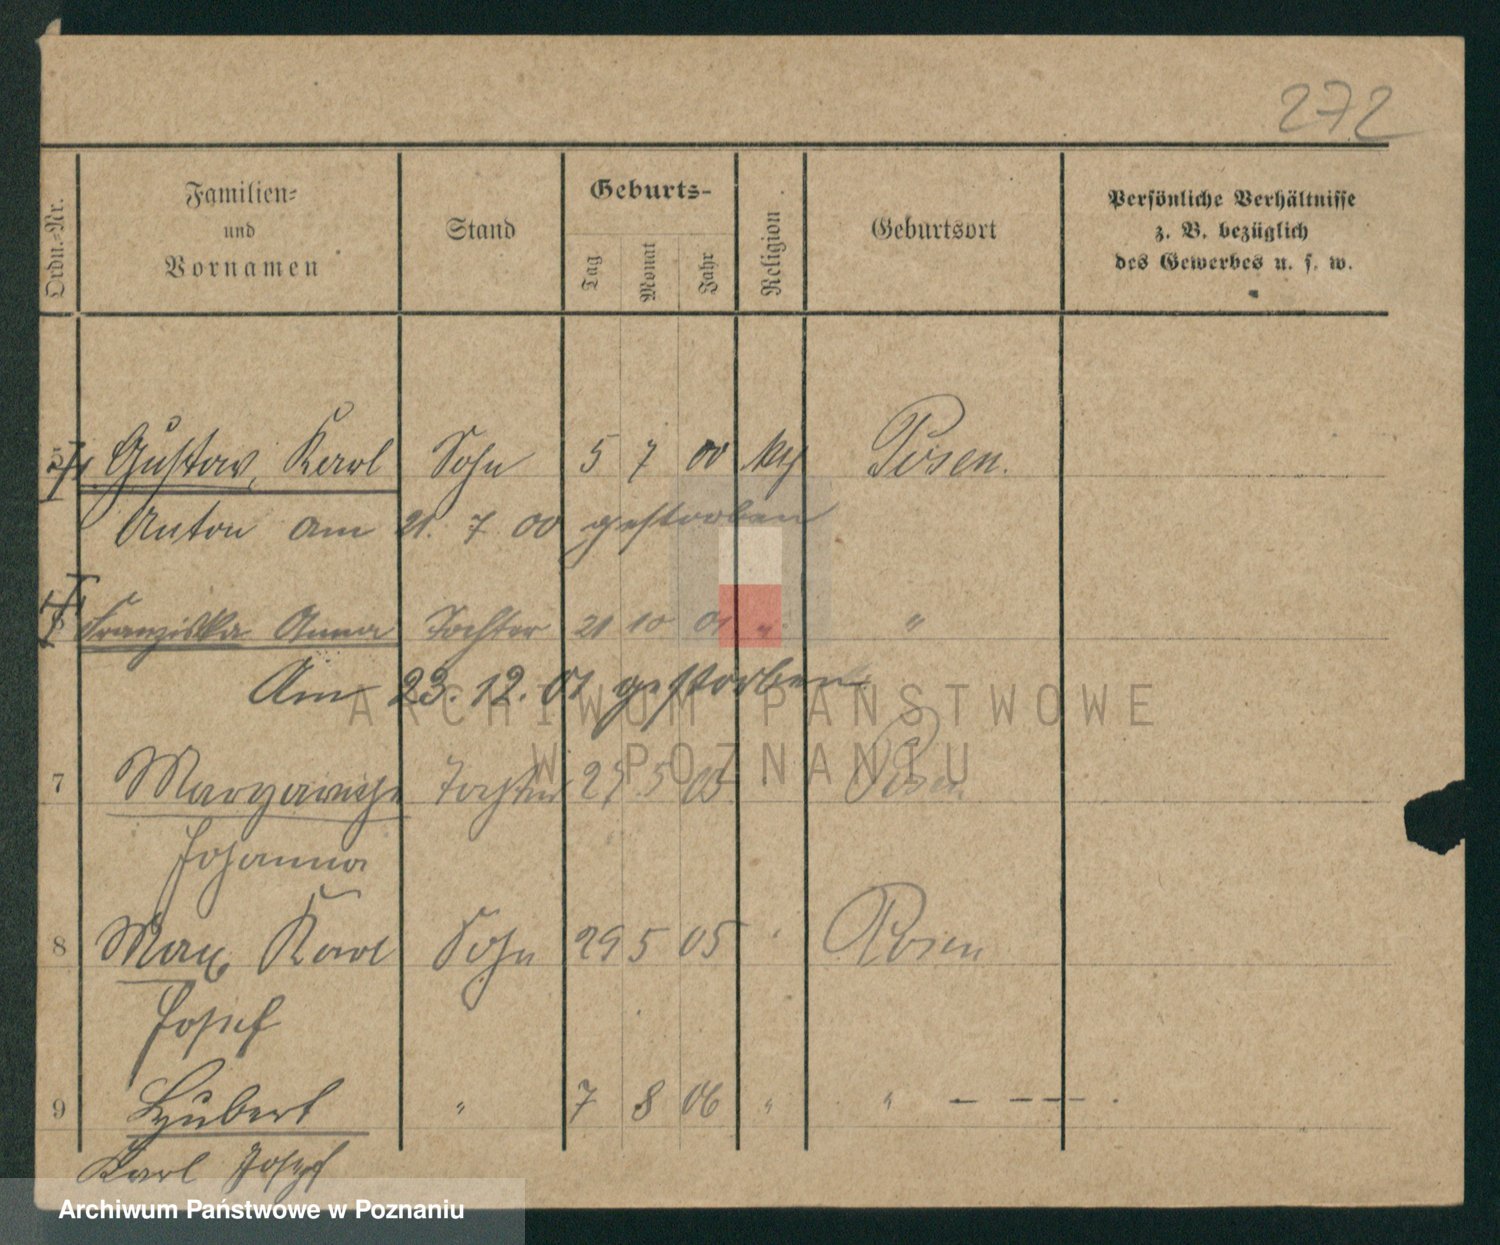 272
Ordn.-Nr. Familien- und Vornamen Stand Geburts- Tag Monat Jahr Religion Geburtsort Persönliche Verhältnisse z. B. bezüglich des Gewerbes u. s. w.
5 Gustav, Karl Sohn 5 7 00 kath Posen.
Anton am 21. 7 00 gestorben
6 Franziska Anna Tochter 21 10 01 " "
Am 23. 12. 01 gestorben
ARCHIWUM PAŃSTWOWE
W POZNANIU
7 Margarethe Tochter 27 5 03 Posen
Johanna
8 Max Karl Sohn 29 5 05 " Posen
Josef
9 Hubert " 7 8 06 " " — — — —.
Karl Josef
Archiwum Państwowe w Poznaniu